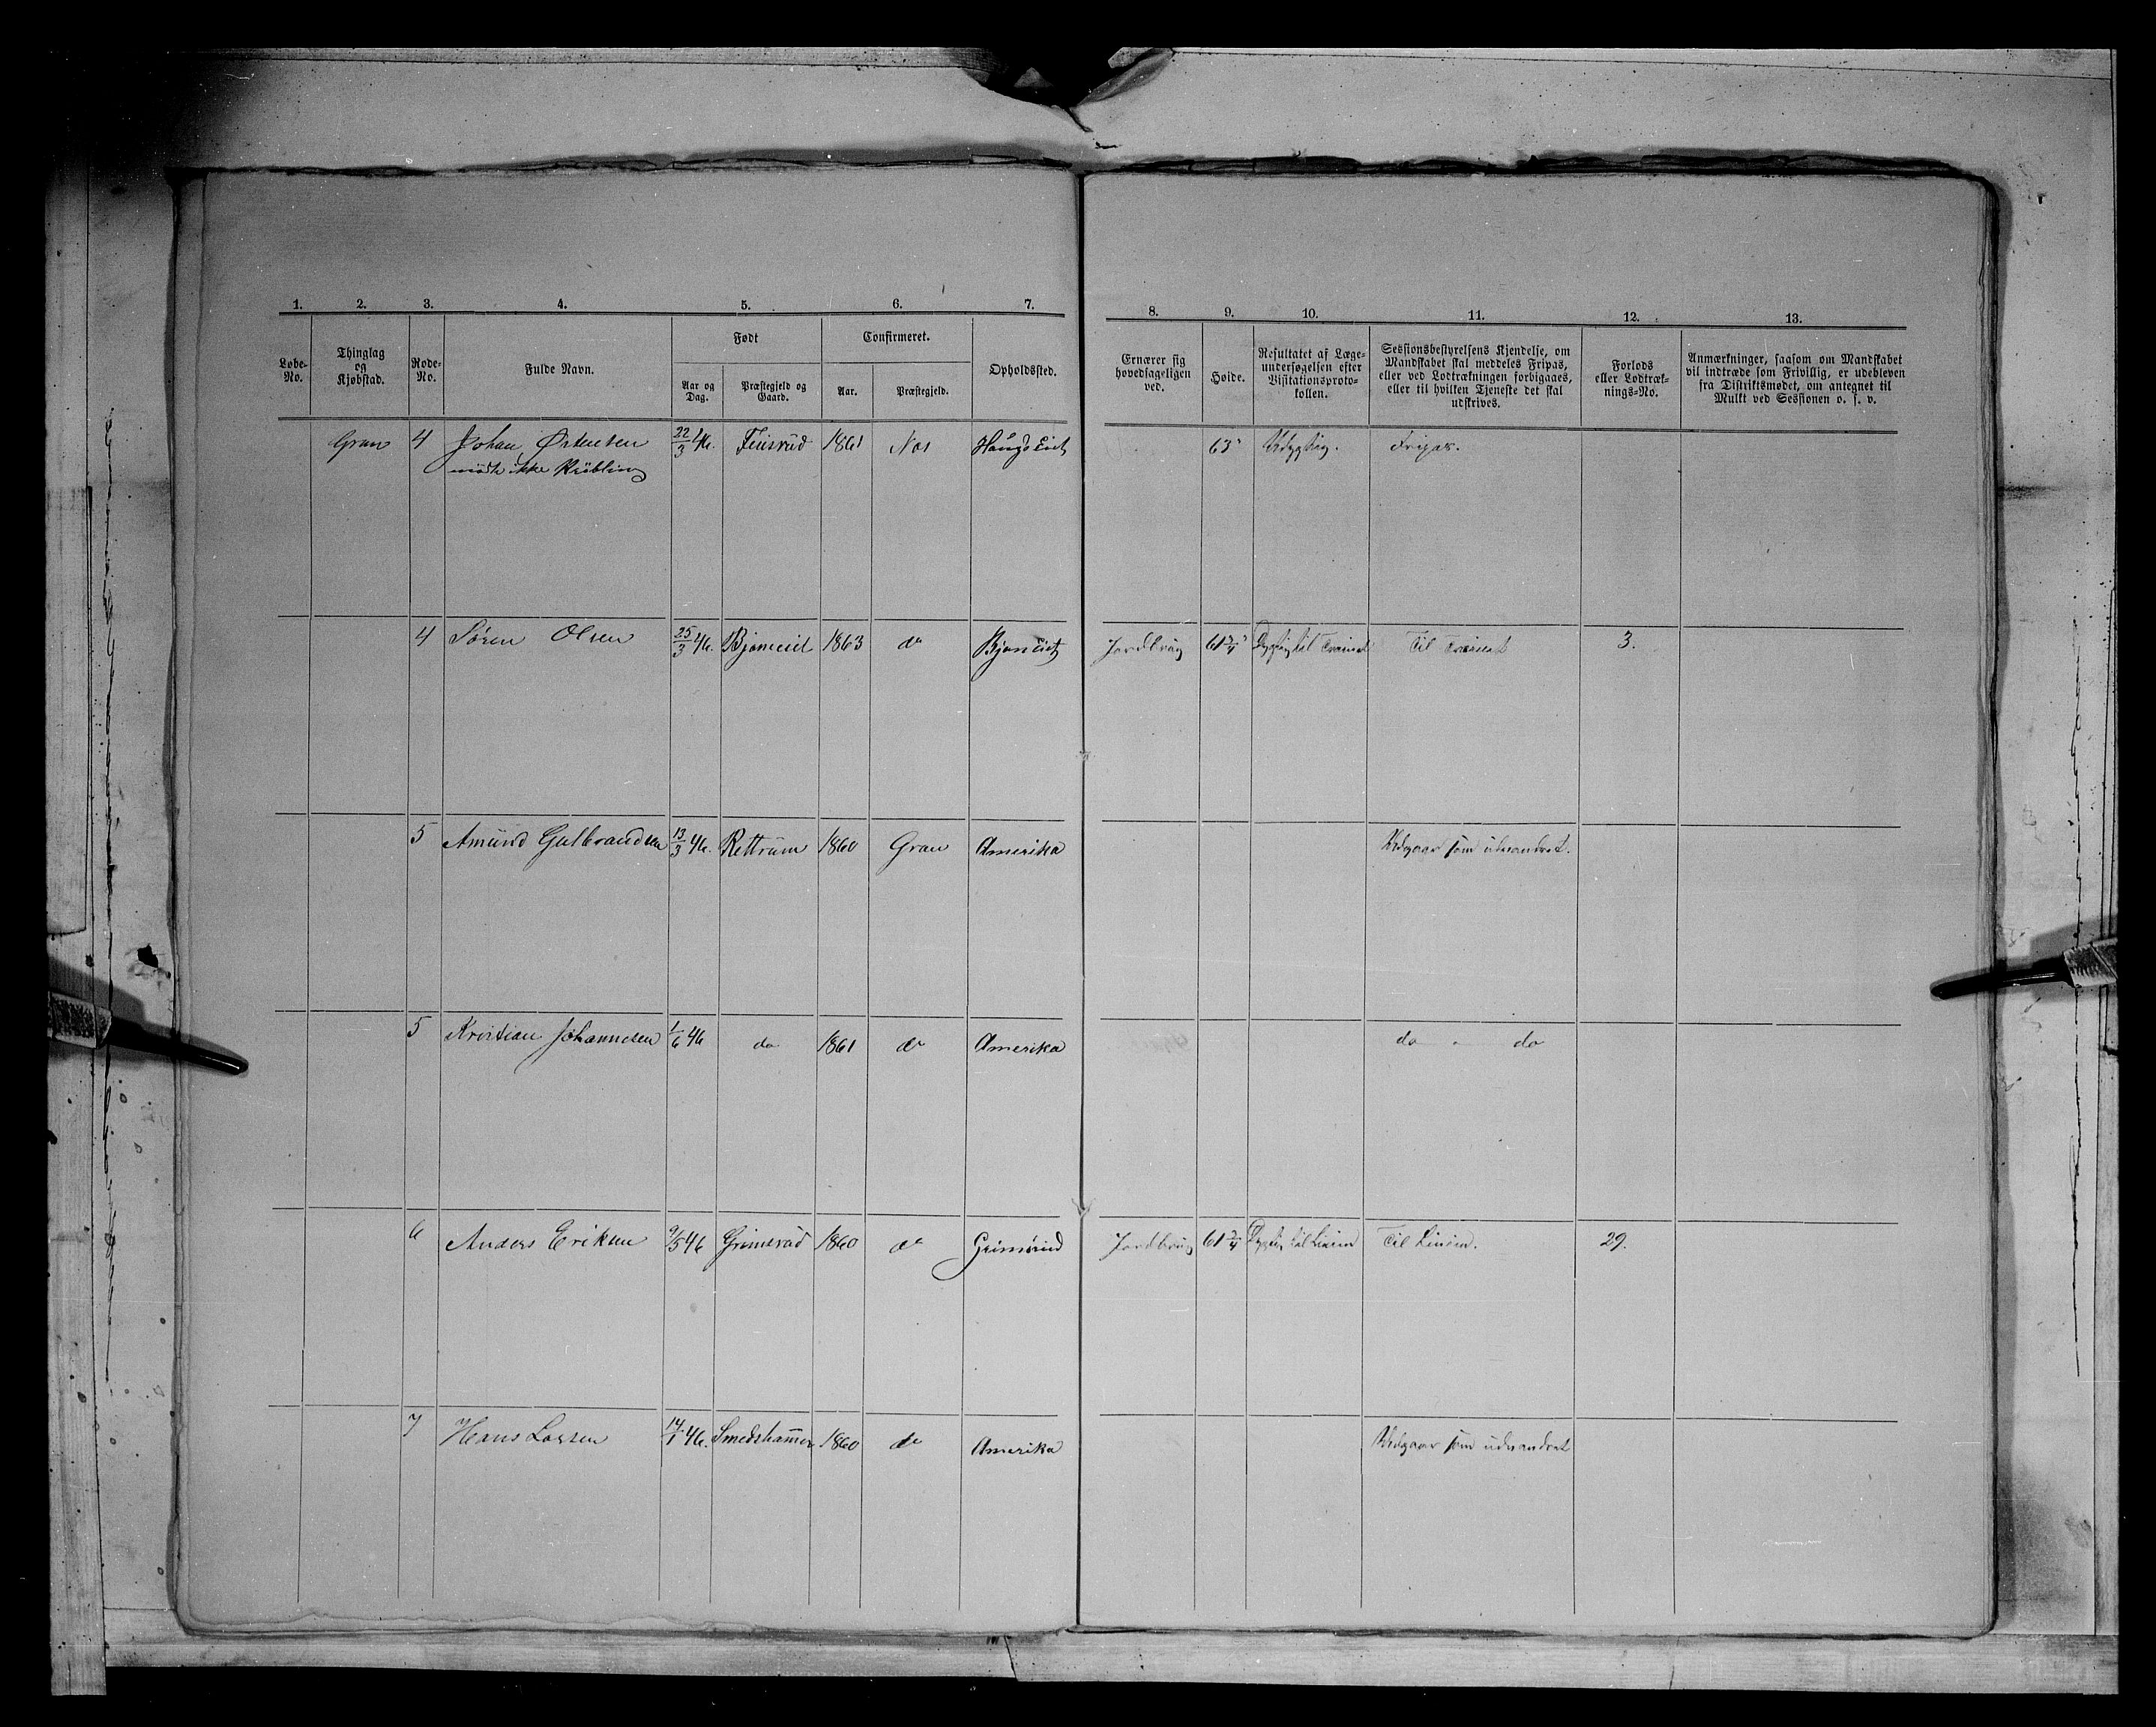 1. 2. 3. 4. 5. 6. 7. 8. 9. 10. 11. 12. 13.
Løbe-No.
Thinglag og Kjøbstad.
Rode-No.
Fulde Navn.
Født
Aar og Dag.
Præstegjeld og Gaard.
Confirmeret.
Aar.
Præstegjeld.
Opholdssted.
Ernærer sig hovedsageligen ved.
Høide.
Resultatet af Læge-undersøgelsen efter Visitationsproto-kollen.
Sessionsbestyrelsens Kjendelse, om Mandskabet skal meddeles Fripas, eller ved Lodtrækningen forbigaaes, eller til hvilken Tjeneste det skal udskrives.
Forlods eller Lodtræk-nings-No.
Anmærkninger, saasom om Mandskabet vil indtræde som Frivillig, er udebleven fra Distriktsmødet, om antegnet til Mulkt ved Sessionen o. s. v.
Gran 4 Johan Østensen 22/3 46. 1861 Nes 63" Udygtig. Fripas.
mødte ikke
4 Søren Olsen 25/3 46. Bjoneeiet 1863 do Bjoneeiet Jordbrug 61 3/4" Dygtig til Trainet Til Trainet 3.
5 Amund Gulbrandsen 13/3 46. Rettrum 1860 Gran Amerika Udgaar som udvandret.
5 Kristian Johannesen 1/6 46 do 1861 do Amerika do - do
6 Anders Eriksen 9/5 46 Grimsrud 1860 do Grimsrud Jordbrug 61 3/4 Dygtig til Linien Til Linien. 29.
7 Hans Larsen 14/1 46. Smedshammer 1860 do Amerika Udgaar som udvandret